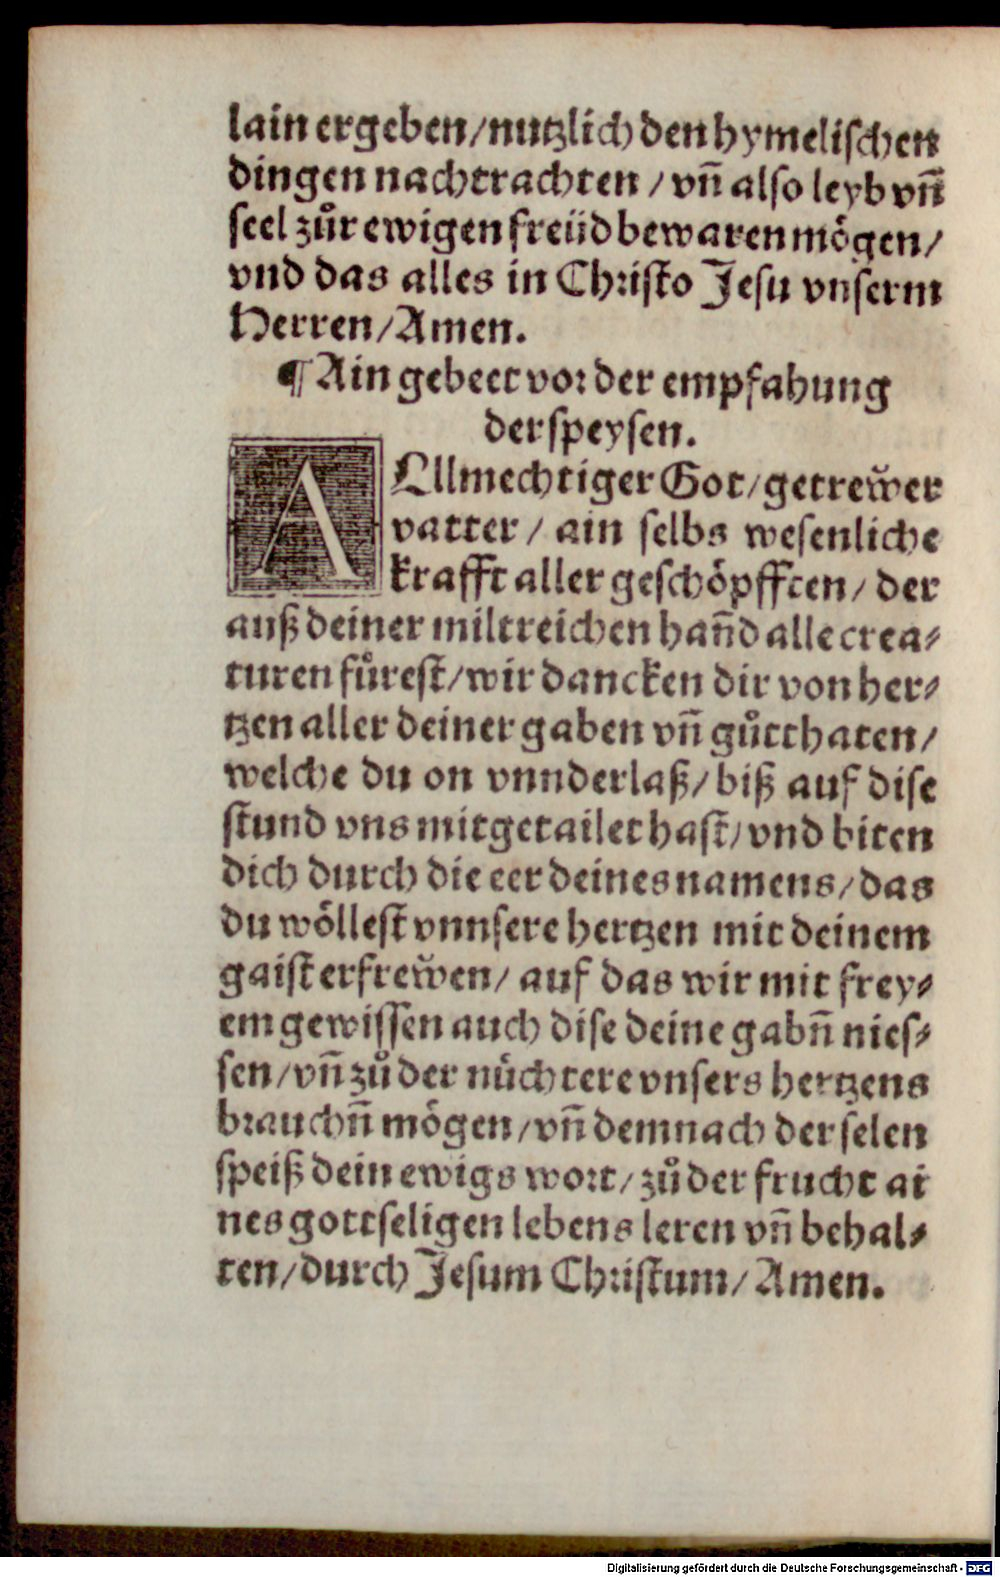 lain ergeben/nutzlich den hymelischen
dingen nachtrachten / vñ also leyb vñ
seel zůr ewigen freüd bewaren mögen/
vnd das alles in Christo Jesu vnserm
Herren/Amen.
¶ Ain gebeet vor der empfahung
der speysen.
ALlmechtiger Got/getrew̌er
vatter/ ain selbs wesenliche
krafft aller geschöpfften/ der
auß deiner miltreichen hañd alle crea⸗
turen fůrest/wir dancken dir von her⸗
tzen aller deiner gaben vñ gůtthaten/
welche du on vnnderlaß/ biß auf dise
stund vns mitgetailet hast/vnd biten
dich durch die eer deines namens/das
du wöllest vnnsere hertzen mit deinem
gaist erfrew̌en/ auf das wir mit frey⸗
em gewissen auch dise deine gabñ nies⸗
sen/vñ zů der nůchtere vnsers hertzens
brauchñ mögen/vñ demnach der selen
speiß dein ewigs wort/zů der frucht ai
nes gottseligen lebens leren vñ behal⸗
ten/durch Jesum Christum/Amen.
Digitalisierung gefördert durch die Deutsche Forschungsgemeinschaft - DFG